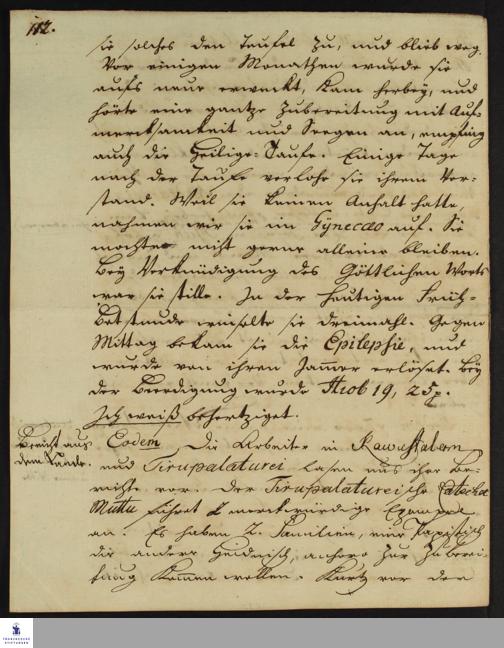 112.
sie solches dem Teufel zu, und blieb weg.
Vor einigen Monathen wurde sie
aufs neue erweckt, kam herbey, und
hörte eine gantze Zubereitung mit Auf-
mercksamkeit und Seegen an, empfing
auch die Heilige-Taufe. Einige Tage
nach der Taufe verlohr sie ihren Ver-
stand. Weil sie keinen Anhalt hatte,
nahmen wir sie im Gynecaeo auf. Sie
mochte nicht gerne alleine bleiben.
Bey Verkündigung des Göttlichen Worts
war sie stille. In der heutigen Früh-
Betstunde winselte sie dreimahl. Gegen
Mittag bekam sie die Epilepsie, und
wurde von ihrem Jammer erlöset. Bey
der Beerdigung wurde Hiob 19, 25
Ich weiß behertziget.
Bericht aus
dem Lande.
Eodem Die Arbeiter in
und Tirupalaturei lasen uns ihre Be-
richte vor. Der Tirupalatureische Catechet
Muttu führet 2 merckwürdige Exempel
an. Es haben 2. Familien, eine Papistisch
die andere Heidnisch, anhero zur Zuberei-
tung kommen wollen. Kurtz vor der
FRANCKESCHE
STIFTUNGEN